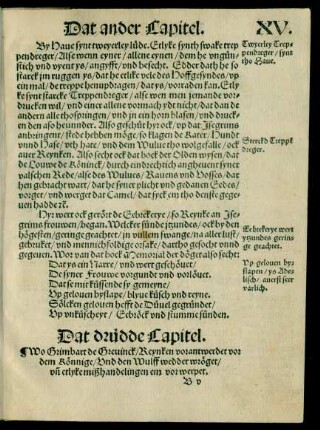 Dat ander Capitel. XV.
By Haue synt tweyerley lüde. Etlyke synth swake trep
pendreger/ Alse wenn eyner/ alleine eynen/ dem he vngün-
stich vnd vyent ys/ angyfft/ vnd besecht. Edder dath he so
starck im ruggen ys/ dat he etlike vele des Hoffgesyndes/ vp
ein mal/ de treppe henupdragen/ dat ys/ vorraden kan. Etly
ke synt starcke Treppendreger/ alse wen men jemande vor-
drucken wil/ vnd einer allene vormach ydt nicht/ dat dan de
andern alle thospringen/ vnd jn ein horn blasen/ vnd drucken
en den also herunder. Also geschüt hyr ock/ vp dat Isegrims
anbringent/ flote hebben möge/ so klagen de Kater/ Hundt
vnnd Hase/ vth hate/ vnd dem Wulue tho wolgefalle/ ock
auer Reynken. Also secht ock dat bock der Olden wysen/ dat
de Louwe de Könninck/ dorch eindrechtich anghevent syner
valschen Rede/ alse des Wulues/ Rauens vnd Vosses/ dat
hen gebracht wart/ dat he syner plicht vnd gedanen Eedes/
vorget/ vnd worget dat Camel/ dat syck en tho denste gege-
uen hadde rc.
Hyr wert ock gerört de Eebrekerye/ so Reynke an Ise-
grims frouwen/ began. Welcker sünde jtzundes/ ock by den
högesten/ geringe geachtet/ in vullem swange/ na aller lust/
gebruket/ vnd mennichfoldige orsake/ dartho gesocht vnnd
gegeuen. Wol van dat bock Memorial der döget also secht:
Dat ys ein Narre/ vnd wert geschouet/
De syner Frouwe vorgundt vnd vorlöuet.
Dat se mit küssende sy gemeyne/
Vp gelouen byslape/ blyue küsch vnd reyne.
Sölcken gelouen hefft de Düuel gegründet/
Vp vnküscheyt/ Eebröck vnd stumme sünden.
Twyerley Trep-
pendreger/ synt
tho Haue.
Starcke Treppe
dreger.
Eebrekerye wert
ytzundes gerin-
ge geachtet.
Vp gelouen by-
slapen/ ys Ade-
lisch/ auerst ser
varlich.
Dat drüdde Capitel.
Wo Grimbart de Greuinck/ Reynken vorantwerdet vor
dem Könnige/ Vnd den Wulff wedder wröget/
vn etlyke mißhandelingen em vorwerpet.
B v